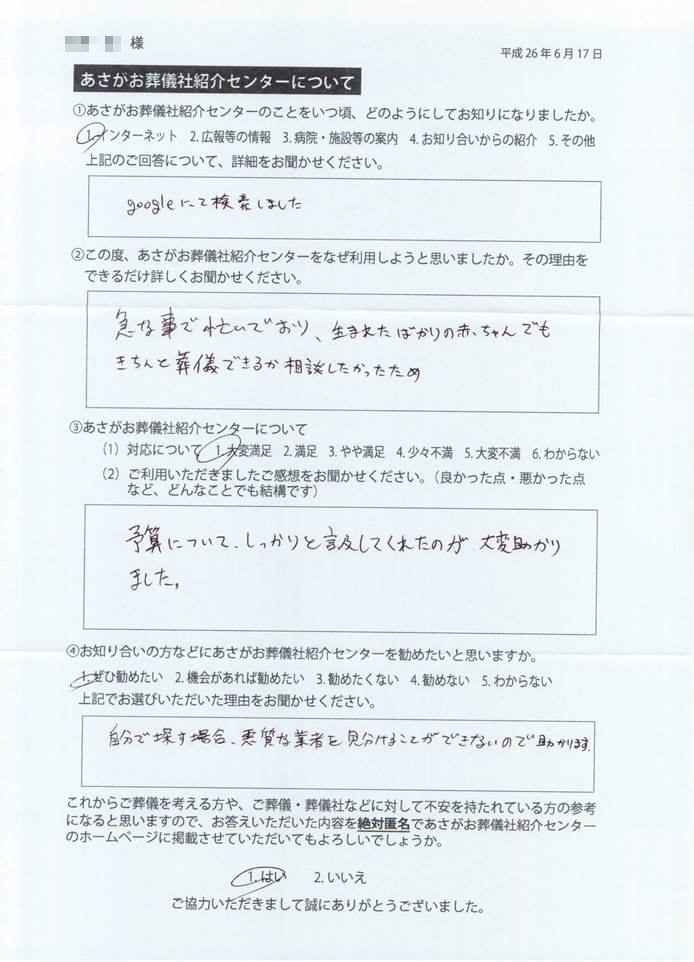 様
平成26年6月17日
あさがお葬儀社紹介センターについて
①あさがお葬儀社紹介センターのことをいつ頃、どのようにしてお知りになりましたか。
1.インターネット 2.広報等の情報 3.病院・施設等の案内 4.お知り合いからの紹介 5.その他
上記のご回答について、詳細をお聞かせください。
googleにて検索しました
②この度、あさがお葬儀社紹介センターをなぜ利用しようと思いましたか。その理由を
できるだけ詳しくお聞かせください。
急な事で忙しいでおり、生まれたばかりの赤ちゃんでも
きちんと葬儀できるか相談したかったため
③あさがお葬儀社紹介センターについて
(1) 対応について 1.大変満足 2.満足 3.やや満足 4.少々不満 5.大変不満 6.わからない
(2) ご利用いただきましたご感想をお聞かせください。(良かった点・悪かった点
など、どんなことでも結構です)
予算について、しっかりと言及してくれたのが、大変助かり
ました。
④お知り合いの方などにあさがお葬儀社紹介センターを勧めたいと思いますか。
1.ぜひ勧めたい 2.機会があれば勧めたい 3.勧めたくない 4.勧めない 5.わからない
上記でお選びいただいた理由をお聞かせください。
自分で探す場合、悪質な業者を見分けることができないので助かります。
これからご葬儀を考える方や、ご葬儀・葬儀社などに対して不安を持たれている方の参考
になると思いますので、お答えいただいた内容を絶対匿名であさがお葬儀社紹介センター
のホームページに掲載させていただいてもよろしいでしょうか。
1.はい 2.いいえ
ご協力いただきまして誠にありがとうございました。